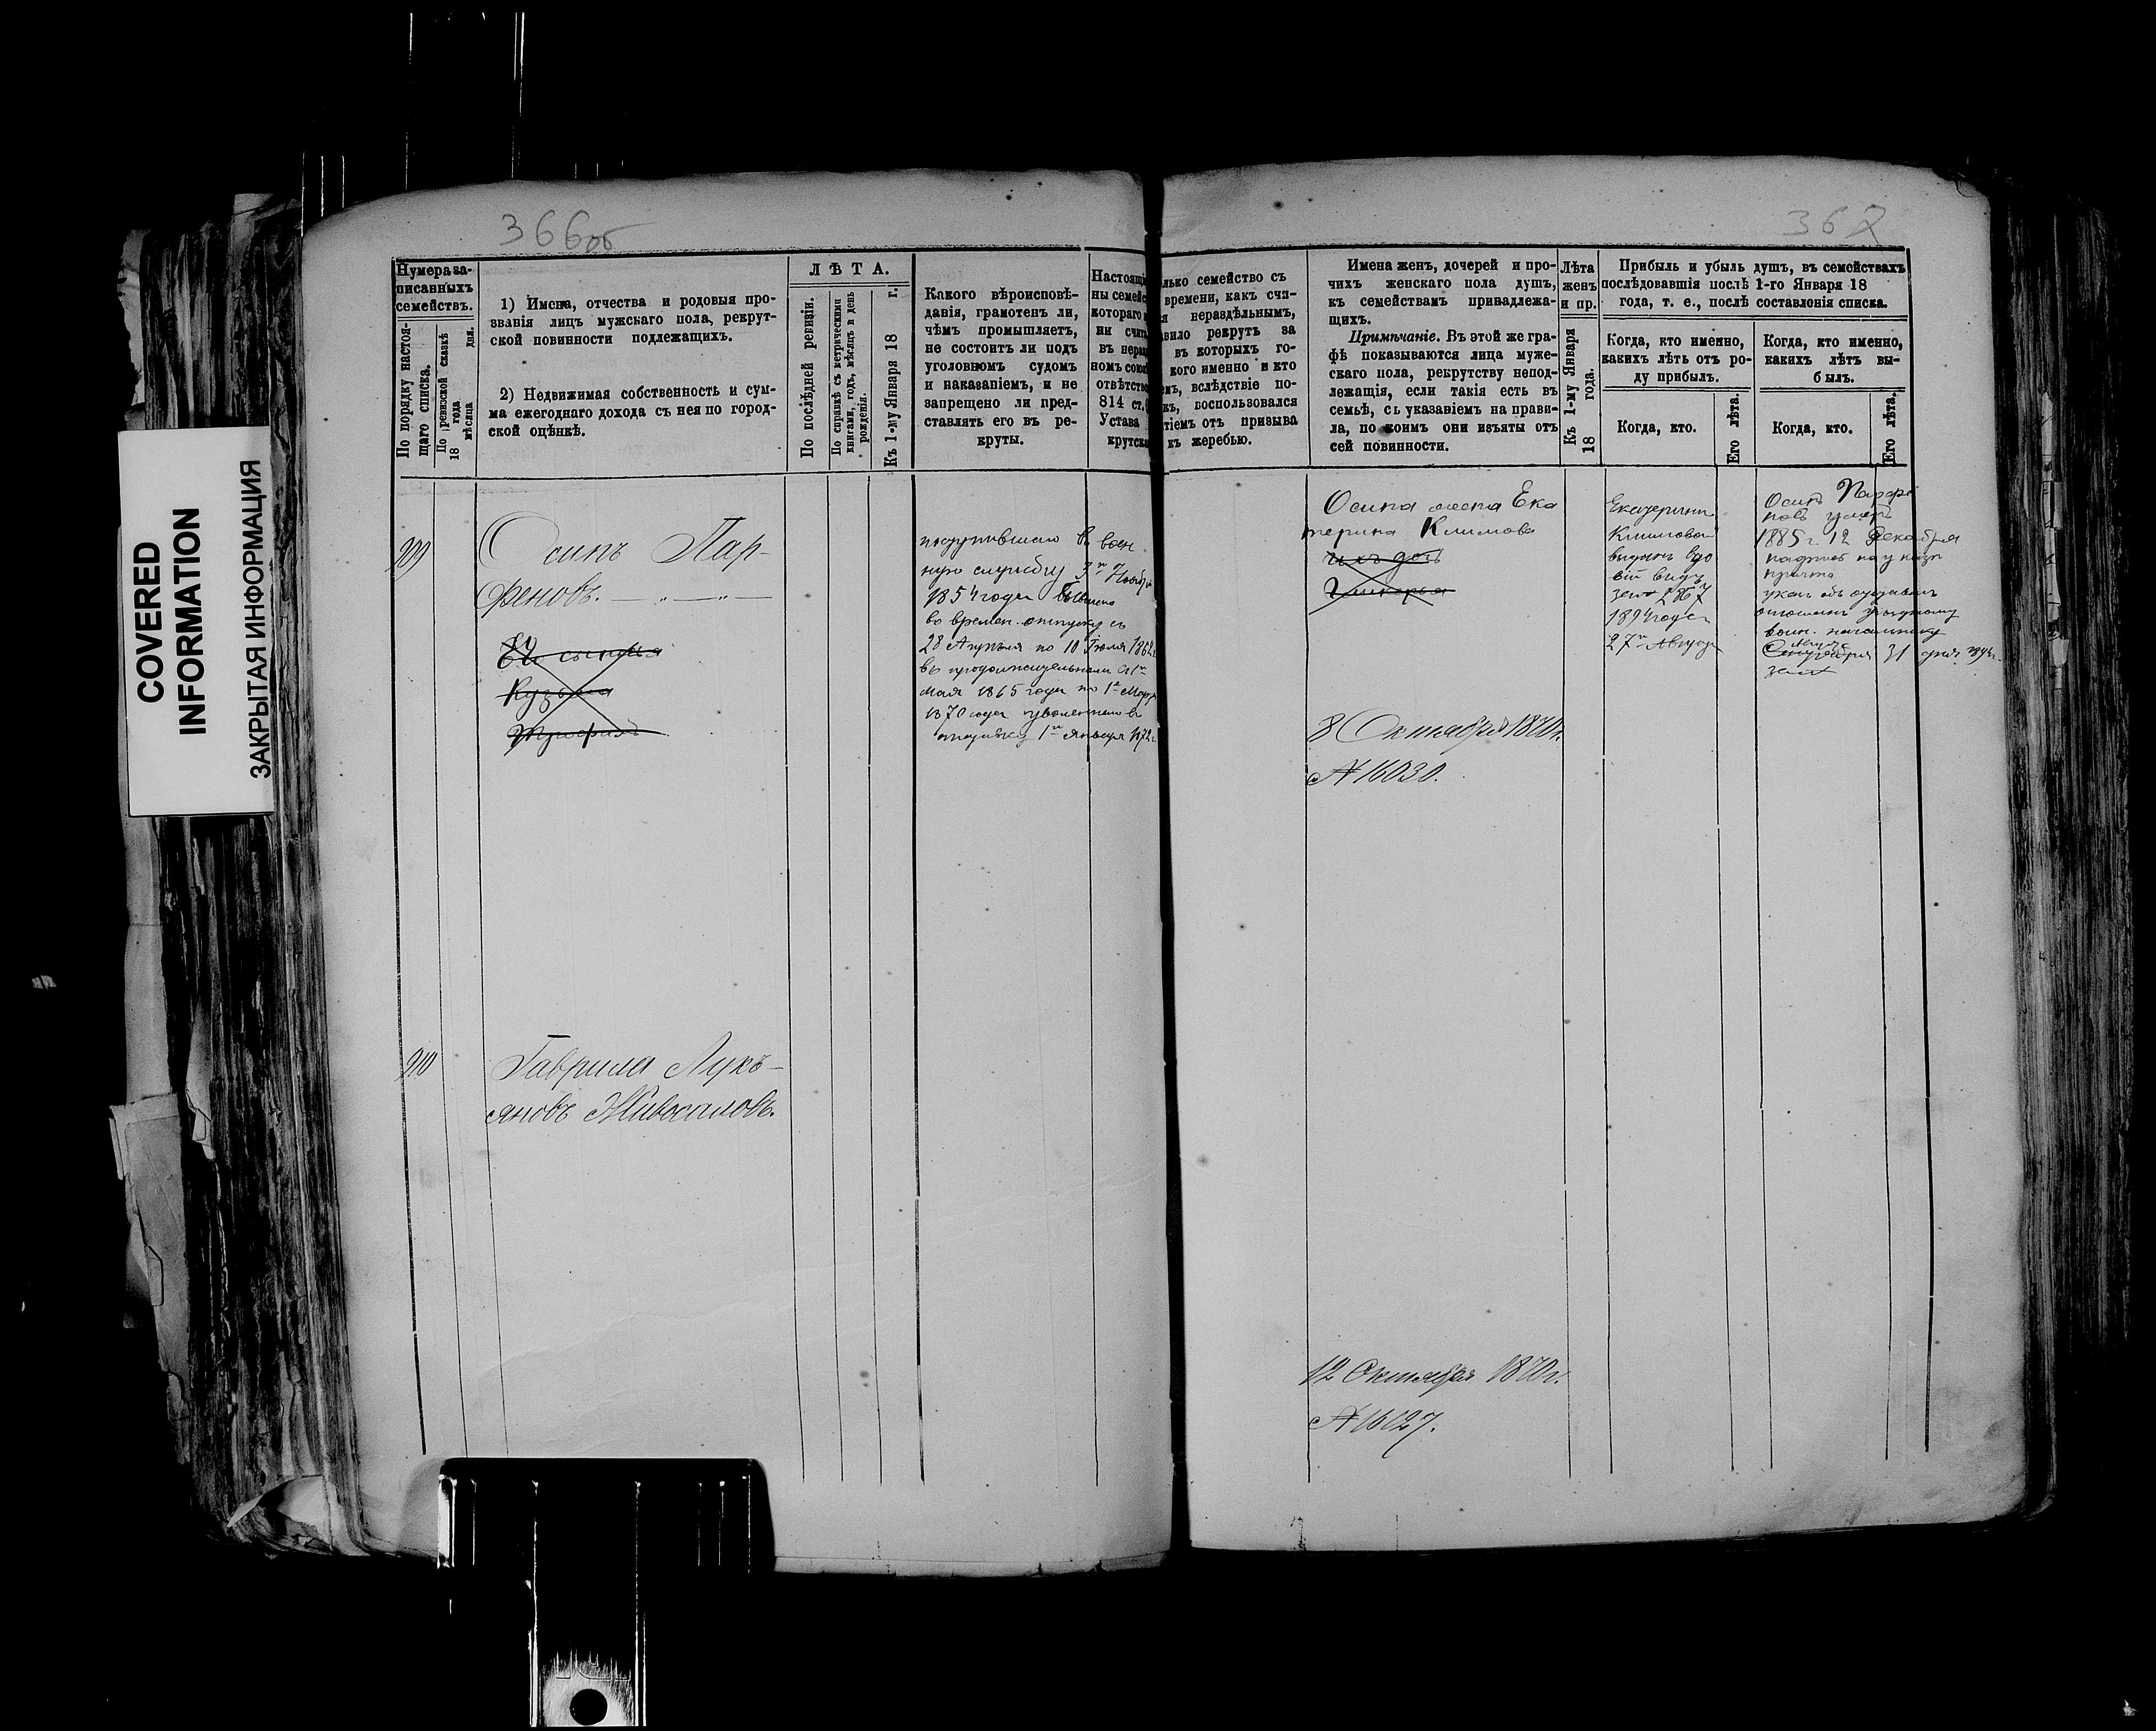 COVERED
INFORMATION
ЗАКРЫТАЯ ИНФОРМАЦИЯ
366об
Нумера за-
писанныхъ
семействъ.
По порядку настоя-
щаго списка.
По ревизской сказкѣ
18 года
мѣсяца дня.
1) Имена, отчества и родовыя про-
званія лицъ мужскаго пола, рекрут-
ской повинности подлежащихъ.
2) Недвижимая собственность и сум-
ма ежегоднаго дохода съ нея по город-
ской оцѣнкѣ.
ЛѢТА.
По послѣдней ревизіи.
По справкѣ съ метрическими
книгами, годъ, мѣсяцъ и день
рожденія.
Къ 1-му Января 18 г.
Какого вѣроисповѣ-
данія, грамотенъ ли,
чѣмъ промышляетъ,
не состоитъ ли подъ
уголовномъ судомъ
и наказаніемъ, и не
запрещено ли пред-
ставлять его въ ре-
круты.
Настоящі
ны семейс
котораго
ни счита
въ нераз
номъ сою
отвѣтстве
814 ст.
Устава
крутска
909
Осипъ Пар-
феновъ.
Его сыновья
Кузьма
Трофимъ
поступившаго въ воен
ную службу 3го Ноября
1854 года
во времен. отпуску съ
28 Апрѣля по 10 Іюля 1862 г.
въ продолжительномъ съ 1го
Мая 1865 года по 1е Марта
1870 года уволеннаго въ
отставку 1го Января 1872 г.
910
Гаврила Лукь-
яновъ Живосиловъ.
367
лько семейство съ
времени, какъ счи-
я нераздѣльнымъ,
авило рекрутъ за
въ которыхъ го-
кого именно и кто
емъ, вслѣдствіе по-
къ, воспользовался
тіемъ отъ призыва
къ жеребью.
Имена женъ, дочерей и про-
чихъ женскаго пола душъ,
къ семействамъ принадлежа-
щихъ.
Примѣчаніе. Въ этой же гра-
фѣ показываются лица муже-
скаго пола, рекрутству непод-
лежащія, если такія есть въ
семьѣ, съ указаніемъ на прави-
ла, по коимъ они изъяты отъ
сей повинности.
Лѣта
женъ
и пр.
Къ 1-му Января
18 года.
Прибыль и убыль душъ, въ семействахъ
послѣдовавшія послѣ 1-го Января 18
года, т. е., послѣ составленія списка.
Когда, кто именно,
какихъ лѣтъ отъ ро-
ду прибылъ.
Когда, кто именно,
какихъ лѣтъ вы-
былъ.
Когда, кто.
Его лѣта.
Когда, кто.
Его лѣта.
Осипа жена Ека
терина Климова
ихъ дочь
8 Октября 1870 г.
№ 16030.
Екатерины
Климовой
выданъ вдо
вій видъ
за № 2867
1894 года
27го Августа
Осипъ Парфе
новъ умеръ
1885 г. 12 Декабря
причта
воин. начальнику
31 дня 1894 г.
12 Октября 1870 г.
№ 16127.